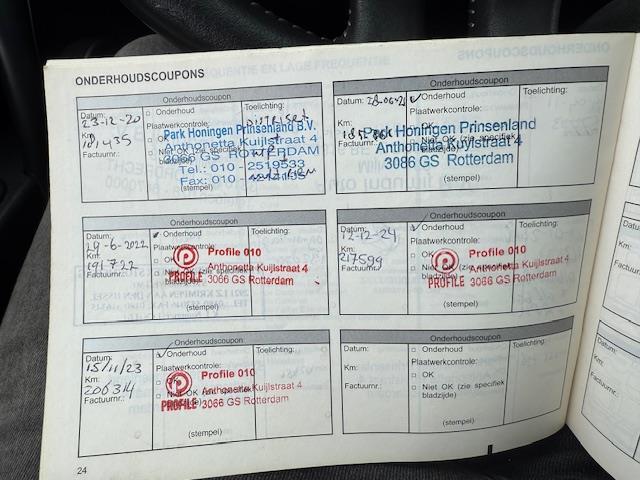 ONDERHOUDSCOUPONS
Onderhoudscoupon
Datum:
23-12-20
Km:
181435
Factuurnr.:
□ Onderhoud
Plaatwerkcontrole:
□ OK
□ Niet OK (zie specifiek
bladzijde)
Toelichting:
Park Honingen Prinsenland B.V.
Anthonetta Kuijlstraat 4
3066 GS ROTTERDAM
Tel.: 010 - 2519533
Fax: 010 -
(stempel)
Onderhoudscoupon
Datum:
Km:
Factuurnr.:
✓ Onderhoud
Plaatwerkcontrole:
□ OK
□ Niet OK (zie specifiek
bladzijde)
Toelichting:
Park Honingen Prinsenland
Anthonetta Kuylstraat 4
3086 GS Rotterdam
(stempel)
Onderhoudscoupon
Datum:
29-6-2022
Km:
191722
Factuurnr.:
✓ Onderhoud
Plaatwerkcontrole:
□ OK
□ Niet OK (zie specifiek
bladzijde)
Toelichting:
PROFILE
Profile 010
Anthonetta Kuijlstraat 4
3066 GS Rotterdam
(stempel)
Onderhoudscoupon
Datum:
12-12-24
Km:
217599
Factuurnr.:
✓ Onderhoud
Plaatwerkcontrole:
□ OK
□ Niet OK (zie specifiek
bladzijde)
Toelichting:
PROFILE
Profile 010
Anthonetta Kuijlstraat 4
3066 GS Rotterdam
(stempel)
Onderhoudscoupon
Datum:
15/11/23
Km:
206314
Factuurnr.:
✓ Onderhoud
Plaatwerkcontrole:
□ OK
□ Niet OK (zie specifiek
bladzijde)
Toelichting:
PROFILE
Profile 010
Anthonetta Kuijlstraat 4
3066 GS Rotterdam
(stempel)
Onderhoudscoupon
Datum:
Km:
Factuurnr.:
□ Onderhoud
Plaatwerkcontrole:
□ OK
□ Niet OK (zie specifiek
bladzijde)
Toelichting:
(stempel)
24